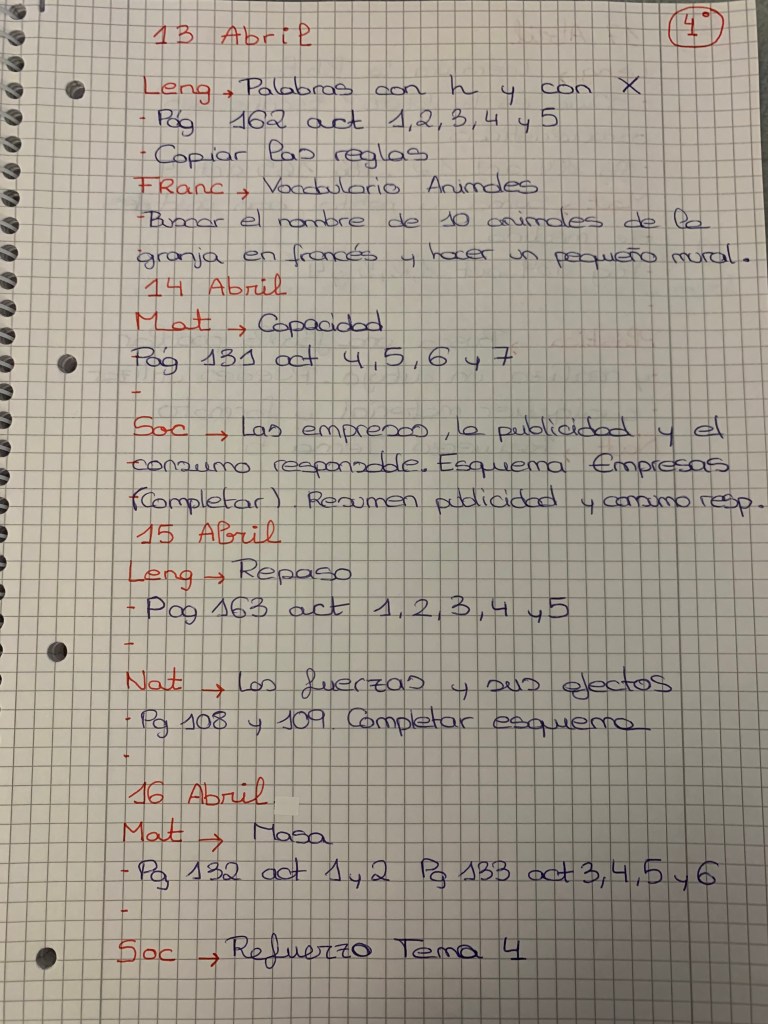 4º
13 Abril
Leng → Palabras con h y con X
- Pág 162 act 1, 2, 3, 4 y 5
- Copiar las reglas
FRanc → Vocabulario Animales
- Buscar el nombre de 10 animales de la
granja en francés y hacer un pequeño mural.
14 Abril
Mat → Capacidad
Pág 131 act 4, 5, 6 y 7
-
Soc → Las empresas, la publicidad y el
consumo responsable. Esquema Empresas
(Completar). Resumen publicidad y consumo resp.
15 Abril
Leng → Repaso
- Pag 163 act 1, 2, 3, 4 y 5
-
Nat → Las fuerzas y sus efectos
- Pg 108 y 109. Completar esquema
-
16 Abril
Mat → Masa
- Pg 132 act 1 y 2 Pg 133 act 3, 4, 5 y 6
-
Soc → Refuerzo Tema 4